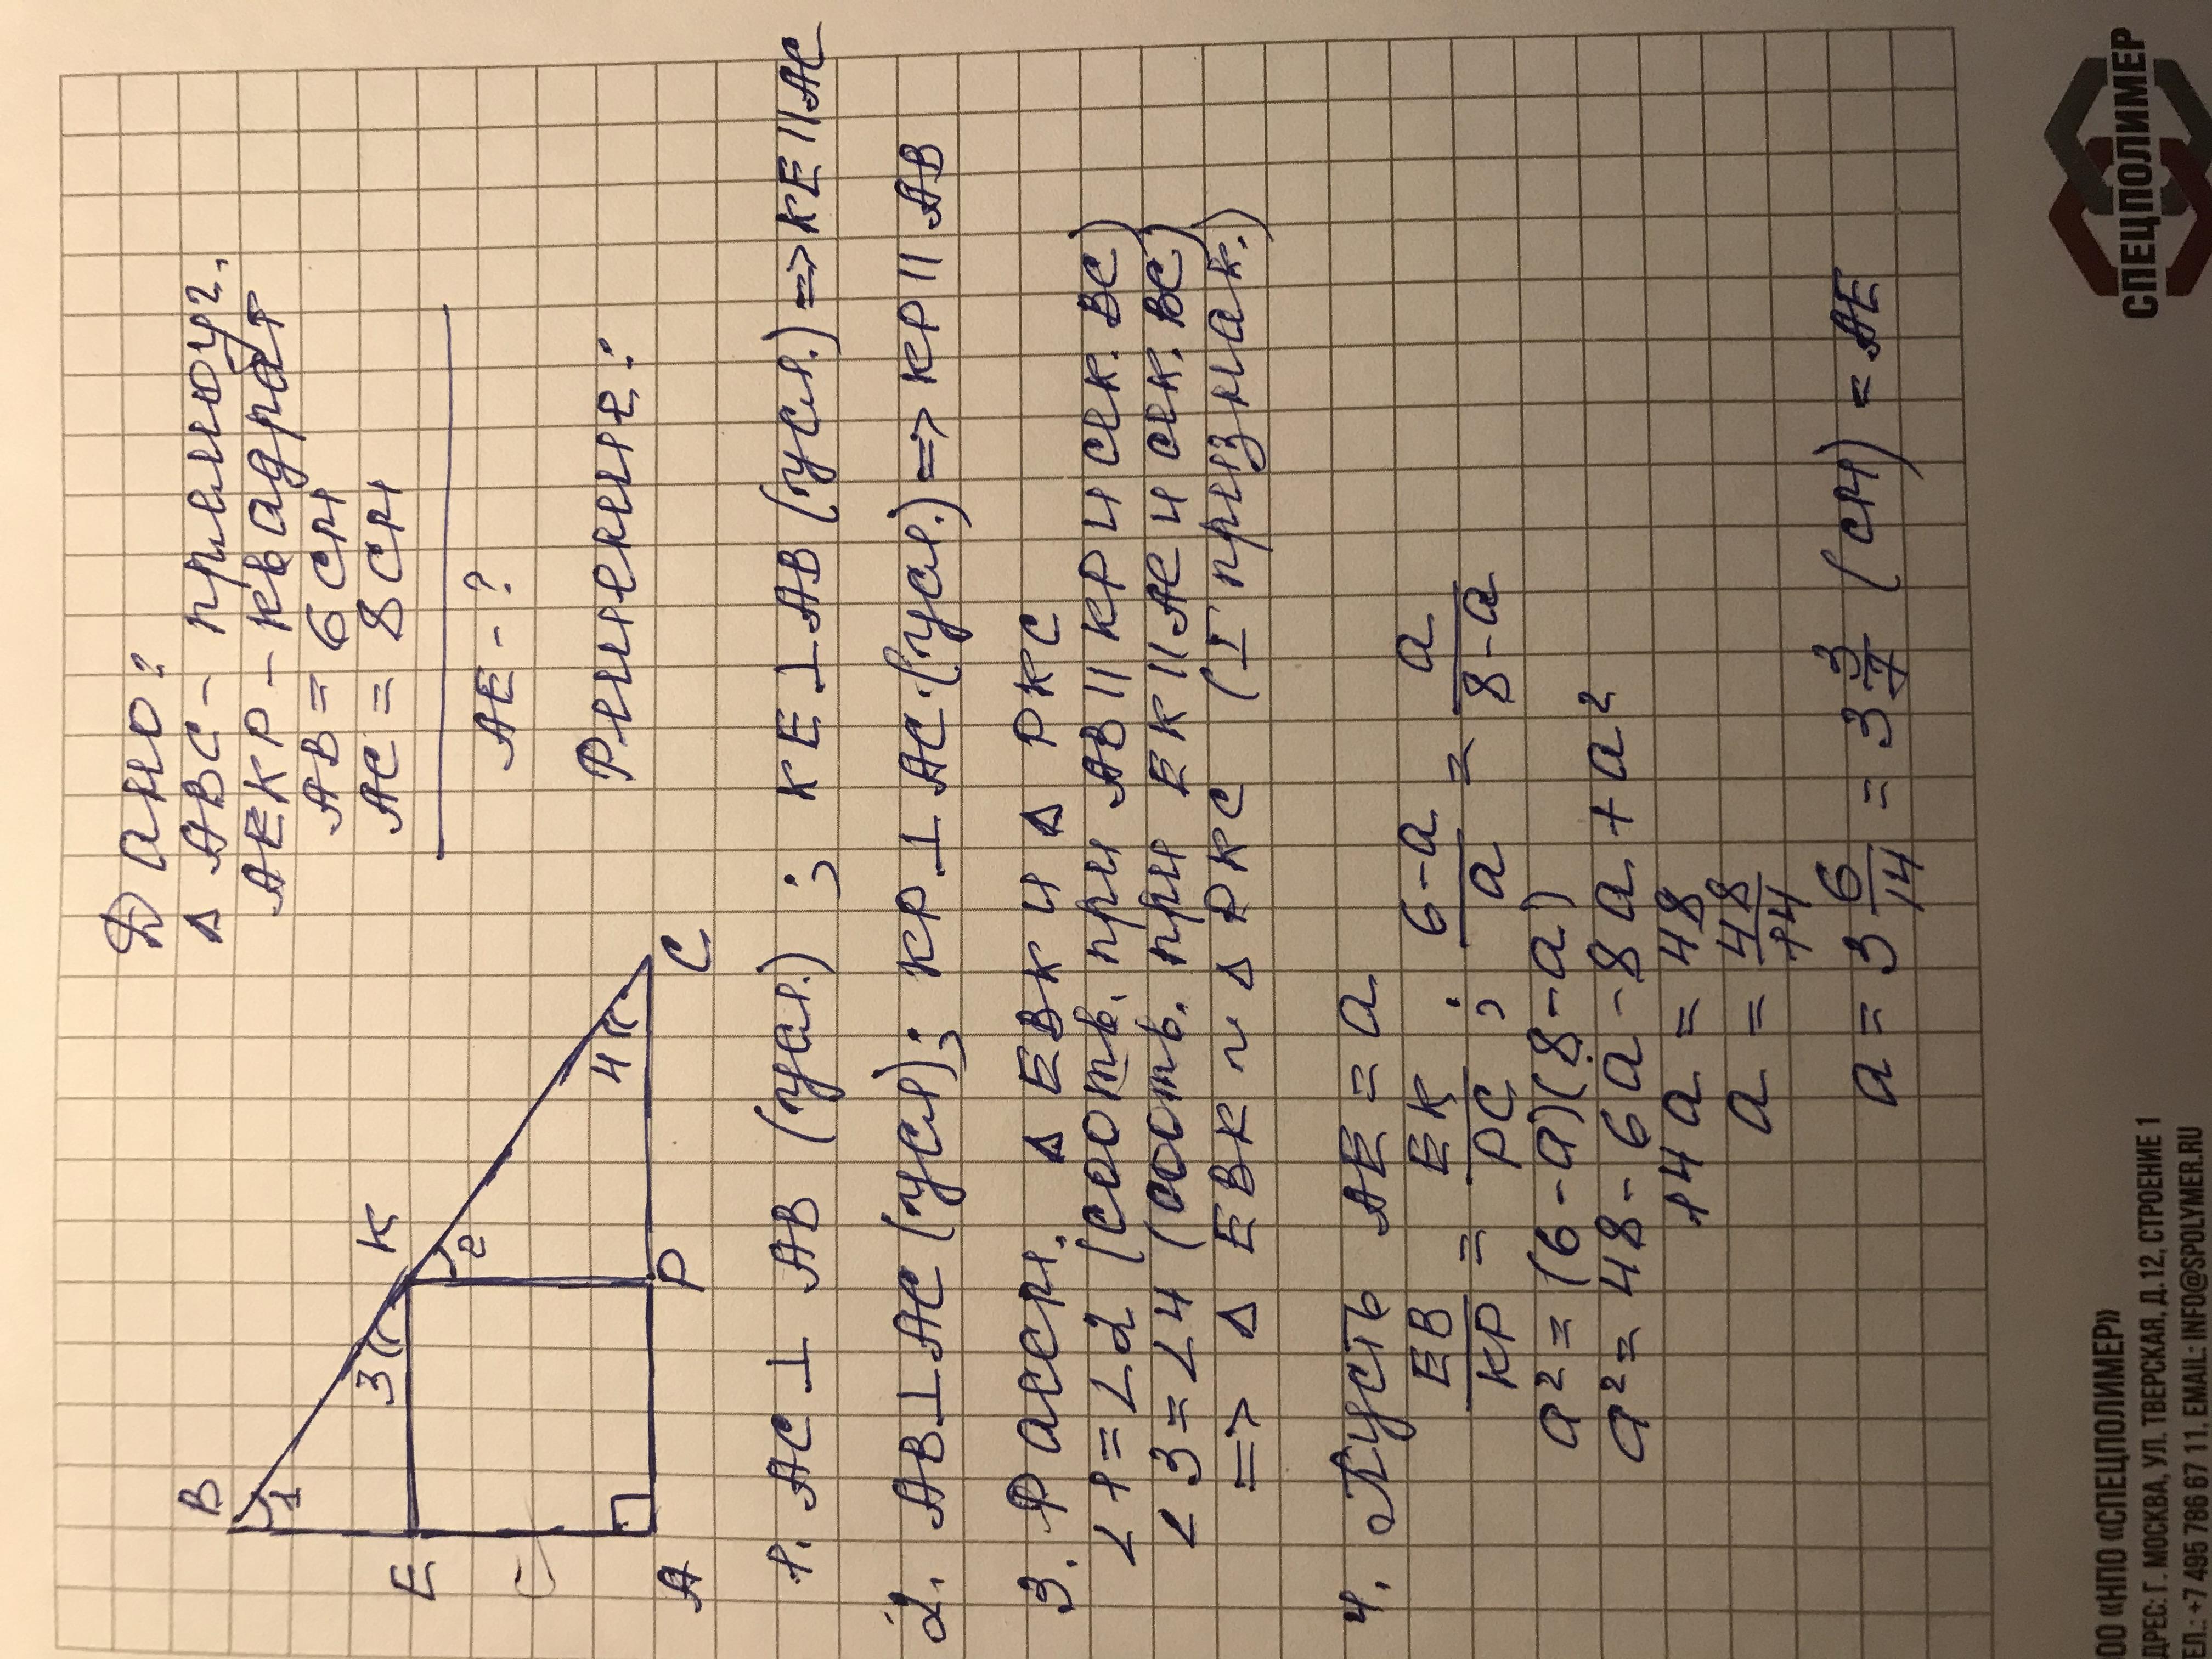 Дано:
Δ ABC - прямоуг.
AEKP - квадрат
AB = 6 см
AC = 8 см
AE - ?
B
K
E
A
P
C
1
3
2
4
Решение:
1. AC ⊥ AB (усл.) ; KE ⊥ AB (усл.) => KE || AC
2. AB ⊥ AC (усл); KP ⊥ AC (усл.) => KP || AB
3. Рассм. Δ EBK и Δ PKC
∠1 = ∠2 (соотв. при AB || KP и сек. BC)
∠3 = ∠4 (соотв. при EK || AC и сек. BC)
=> Δ EBK ~ Δ PKC (I признак.)
4. Пусть AE = a
EB/KP = EK/PC ; 6-a/a = a/8-a
a² = (6-a)(8-a)
a² = 48 - 6a - 8a + a²
14a = 48
a = 48/14
a = 3 6/14 = 3 3/7 (см) = AE
СПЕЦПОЛИМЕР
ОО «НПО «СПЕЦПОЛИМЕР»
ДРЕС: Г. МОСКВА, УЛ. ТВЕРСКАЯ, Д.12, СТРОЕНИЕ 1
ЕЛ.: +7 495 786 67 11. EMAIL: INFO@SPOLYMER.RU